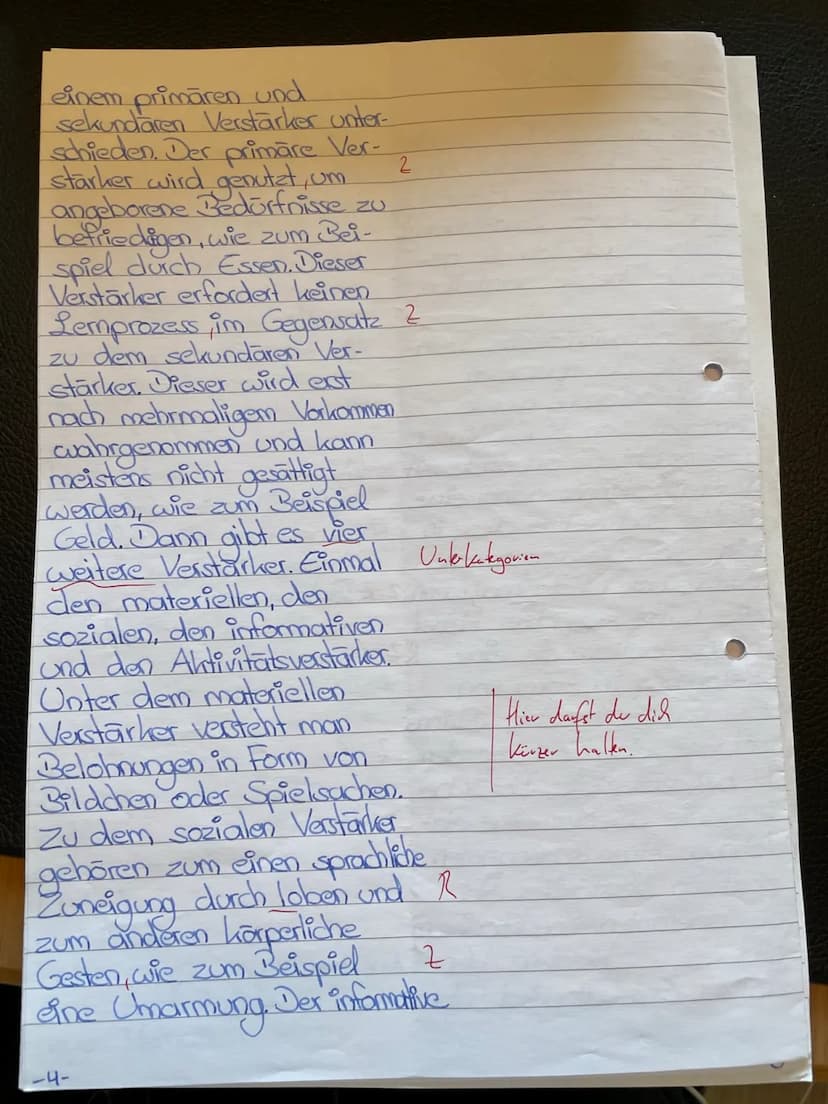 einem primären und
sekundären Verstärker unter-
schieden. Der primäre Ver-
stärker wird genutzt, um
Z
angeborene Bedürfnisse zu
befriedigen, wie zum Bei-
spiel durch Essen. Dieser
Verstärker erfordert keinen
Lernprozess, im Gegensatz
Z
zu dem sekundären Ver-
stärker. Dieser wird erst
nach mehrmaligem Vorkommen
wahrgenommen und kann
meistens nicht gesättigt
werden, wie zum Beispiel
Geld. Dann gibt es vier
weitere Verstärker. Einmal
Unterkategorien
den materiellen, den
sozialen, den informativen
und den Aktivitätsverstärker.
Unter dem materiellen
Verstärker versteht man
Belohnungen in Form von
Bildchen oder Spielsachen.
Hier darfst du dich
kürzer halten.
Zu dem sozialen Verstärker
gehören zum einen sprachliche
Zuneigung durch loben und
R
zum anderen körperliche
Gesten, wie zum Beispiel
Z
eine Umarmung. Der informative
-4-